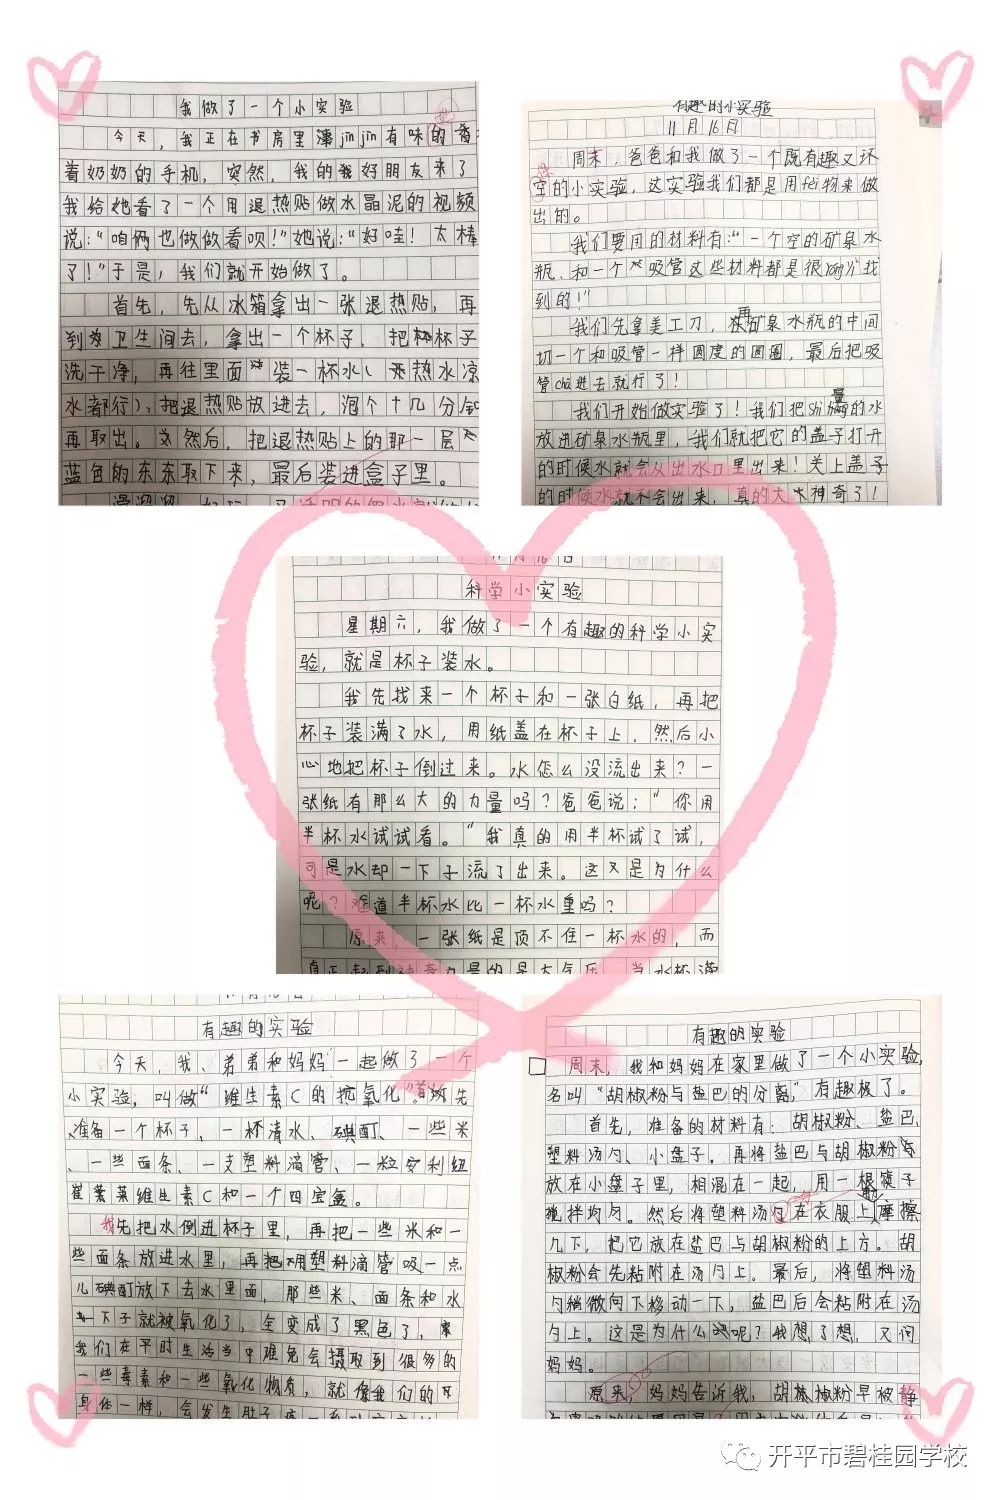 我做了一个小实验
今天,我正在书房里津jīn jīn有味的看
着奶奶的手机,突然,我的好朋友来了
我给她看了一个用退热贴做水晶泥的视频
说:“咱俩也做做看呗!”她说:“好哇!太棒
了!”于是,我们就开始做了。
首先,先从冰箱拿出一张退热贴,再
到卫生间去,拿出一个杯子,把杯子
洗干净,再往里面装一杯水(热水凉
水都行),把退热贴放进去,泡个十几分钟
再取出。然后,把退热贴上的那一层
蓝色的东东取下来,最后装进盒子里。
有趣的小实验
11月16日
周末,爸爸和我做了一个既有趣又环
空的小实验,这实验我们都是用fèi物来做
出的。
我们要用的材料有:“一个空的矿泉水
瓶、和一个吸管这些材料都是很róng yì找
到的!”
我们先拿美工刀,再在矿泉水瓶的中间
切一个和吸管一样圆度的圆圈,最后把吸
管chā进去就行了!
我们开始做实验了!我们把shì量的水
放进矿泉水瓶里,我们就把它的盖子打开
的时候水就会从出水口里出来!关上盖子
的时候水就不会出来,真的太神奇了!
科学小实验
星期六,我做了一个有趣的科学小实
验,就是杯子装水。
我先找来一个杯子和一张白纸,再把
杯子装满了水,用纸盖在杯子上,然后小
心地把杯子倒过来。水怎么没流出来?一
张纸有那么大的力量吗?爸爸说:“你用
半杯水试试看。“我真的用半杯试了试,
可是水却一下子流了出来。这又是为什么
呢?难道半杯水比一杯水重吗?
原来,一张纸是顶不住一杯水的,而
真正起到神奇力量的是大气压。当水杯满
有趣的实验
今天,我、弟弟和妈妈一起做了一个
小实验,叫做“维生素C的抗氧化”首先
准备一个杯子、一杯清水、碘酊、一些米
、一些面条、一支塑料滴管、一粒安利纽
崔莱维生素C和一个四宝盒。
我先把水倒进杯子里,再把一些米和一
些面条放进水里,再用塑料滴管吸一点
儿碘酊放下去水里面,那些米、面条和水
一下子就被氧化了,全变成了黑色了,
我们在平时生活当中难免会摄取到很多的
一些毒素和一些氧化物质,就像我们的
身体一样,会发生肚子疼
有趣的实验
周末,我和妈妈在家里做了一个小实验,
名叫“胡椒粉与盐巴的分离”有趣极了。
首先,准备的材料有:胡椒粉、盐巴、
塑料汤勺、小盘子。再将盐巴与胡椒粉
放在小盘子里,相混在一起,用一根筷子
搅拌均匀。然后将塑料汤勺在衣服上摩擦
几下,把它放在盐巴与胡椒粉的上方。胡
椒粉会先粘附在汤勺上。最后,将塑料汤
勺稍微向下移动一下,盐巴后会粘附在汤
勺上。这是为什么呢?我想了想,又问
妈妈。
原来,妈妈告诉我,胡椒粉早被静
开平市碧桂园学校